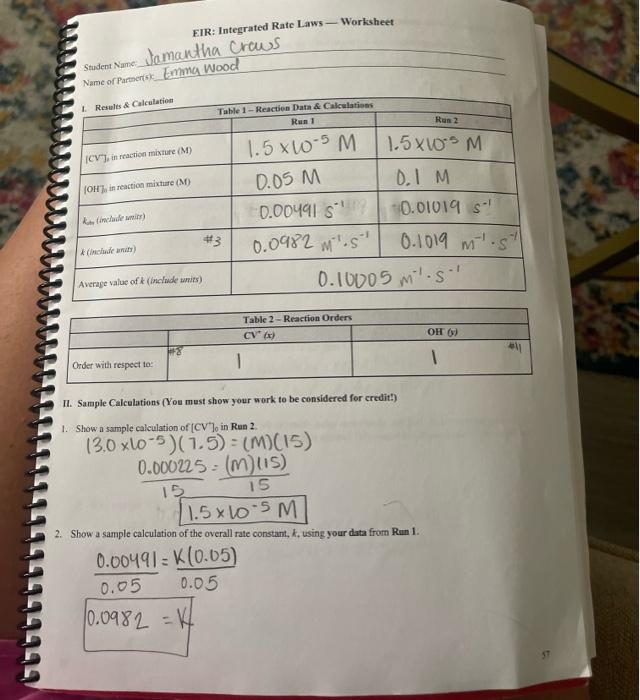 EIR: Integrated Rate Laws — Worksheet
Student Name: Jamantha Crews
Name of Partner(s): Emma Wood
I. Results & Calculation
Table 1 – Reaction Data & Calculations
Run 1 Run 2
[CV⁺]₀ in reaction mixture (M) 1.5 x10⁻⁵ M 1.5x10⁻⁵ M
[OH⁻]₀ in reaction mixture (M) 0.05 M 0.1 M
(include units) 0.00491 s⁻¹ 0.01019 s⁻¹
k (include units) #3 0.0982 M⁻¹·s⁻¹ 0.1019 M⁻¹·s⁻¹
Average value of k (include units) 0.10005 M⁻¹·s⁻¹
Table 2 – Reaction Orders
CV⁺ (x) OH⁻ (y)
Order with respect to: #8 1 1 #11
II. Sample Calculations (You must show your work to be considered for credit!)
1. Show a sample calculation of [CV⁺]₀ in Run 2.
(3.0 x10⁻⁵)(7.5) = (M)(15)
0.000225 = (M)(15)
15 15
1.5 x 10⁻⁵ M
2. Show a sample calculation of the overall rate constant, k, using your data from Run 1.
0.00491 = K(0.05)
0.05 0.05
0.0982 = K
57